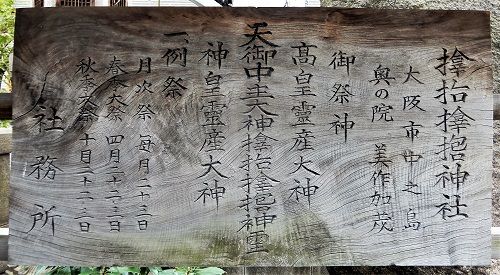 神社
大阪市中之島
奥の院 美作加茂
御祭神
高皇靈産大神
天御中主大神 神靈
神皇靈産大神
一、例祭
月次祭 毎月二十三日
春季大祭 四月二十二・三日
秋季大祭 十月二十二・三日
社務所